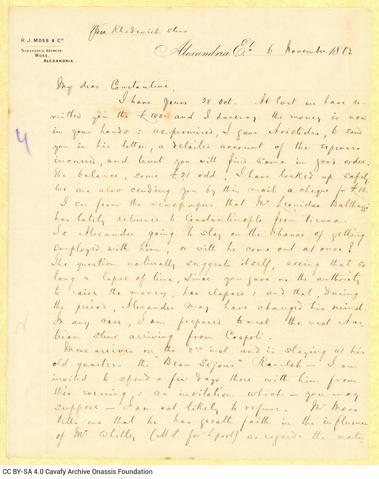 Per Khedivieh Steamer
R. J. MOSS & Co.
TELEGRAPHIC ADDRESS
MOSS.
ALEXANDRIA.
Alexandria Et. 6 November 1883
4
My dear Constantine,
I have yours 28 Oct. At last we have re-
mitted you the £100 and I daresay the money is now
in your hands: as promised, I gave Aristides, to send
you in his letter, a detailed account of the expenses
incurred, and trust you will find same in good order.
The balance, some £21 odd, I have locked up safely.
We are also sending you by this mail a cheque for
I see from the newspapers that Mr Leonidas Baltazzi
has lately returned to Constantinople from Vienna.
Is Alexander going to stay on the chance of getting
employed with him, or will he come out at once?
The question naturally suggests itself, seeing that so
long a lapse of time, since you gave us the authority
to raise the money, has elapsed; and that, during
the period, Alexander may have changed his mind.
In any case, I am prepared to meet the next Aus-
trian stmr arriving from Conspoli.
Moss arrived on the 2nd inst and is staying at his
old quarters the "Beau Séjour" Ramleh - I am
invited to spend a few days there with him from
this evening: an invitation which - you may
suppose - I am not likely to refuse. Mr Moss
tells me that he has great faith in the influence
of Mr Whitley (M.P. for Lpool) as regards the
CC BY-SA 4.0 Cavafy Archive Onassis Foundation